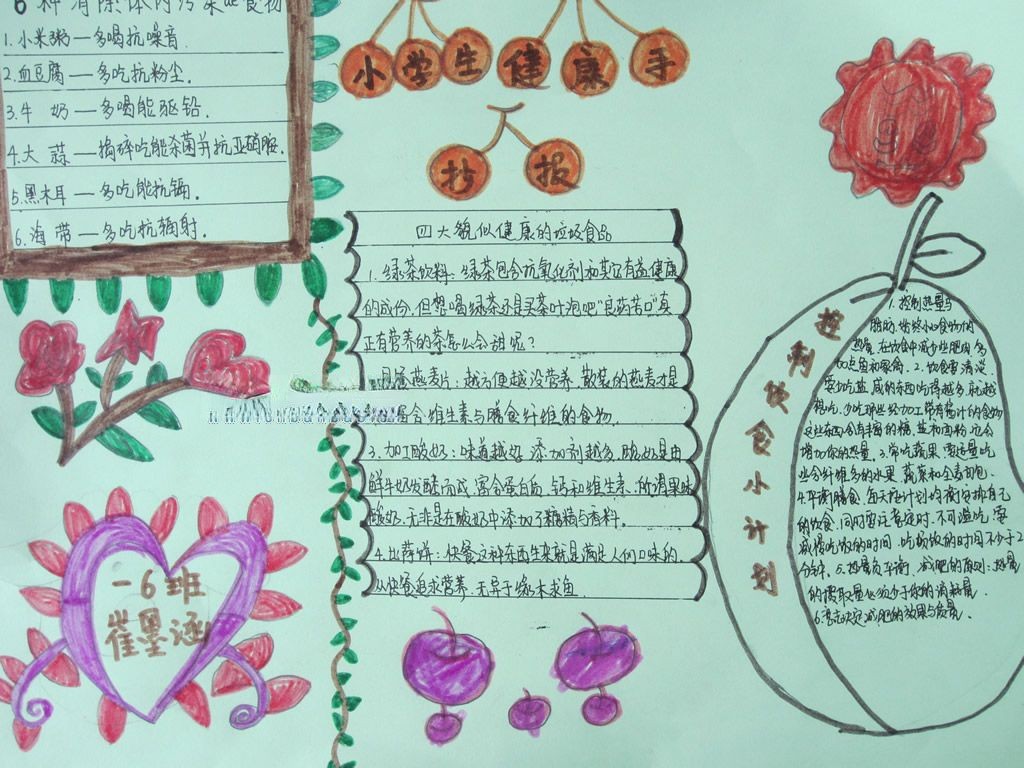 6种消除体内污染de食物
1.小米粥—多喝抗噪音.
2.血豆腐—多吃抗粉尘.
3.牛 奶—多喝能驱铅.
4.大 蒜—捣碎吃能杀菌并抗亚硝胺.
5.黑木耳—多吃能抗镉.
6.海 带—多吃抗辐射.
小学生健康手
抄报
四大貌似健康的垃圾食品
1.绿茶饮料:绿茶包含抗氧化剂和其它有益健康
的成份.但想喝绿茶还是买茶叶泡吧"良药苦口"真
正有营养的茶怎么会甜呢?
燕麦片:越方便越没营养.散装的燕麦才是
合维生素与膳食纤维的食物.
3.加工酸奶:味道越好 添加剂越多,酸奶是由
鲜牛奶发酵而成,富含蛋白质、钙和维生素.所谓果味
酸奶.无非是在酸奶中添加了糖精与香料.
4.比萨饼:快餐这种东西生来就是满足人们口味的.
从快餐追求营养.无异于缘木求鱼.
控制饮食小计划
1.控制热量与
脂肪.始终小心食物的
热量.在饮食中减少些肥肉.多
加点鱼和家禽.2.饮食要清淡
要少吃盐.咸的东西吃得越多.就越
想吃.少吃那些经加工带有酱汁的食物
这些东西含有丰富的糖、盐和面粉.它会
增加你的热量.3.常吃蔬果.要适量吃
些含纤维多的水果、蔬菜和全麦面包.
4.平衡膳食.每天应计划你需包括自己
的饮食.同时要注意定时.不可滥吃.要
减慢吃饭的时间.吃场饭的时间不少于2
分钟.5.热量负平衡.减肥的原则:热量
的摄取量必须少于你的消耗量.
6.意志决定减肥的效果与质量.
一6班
崔墨涵